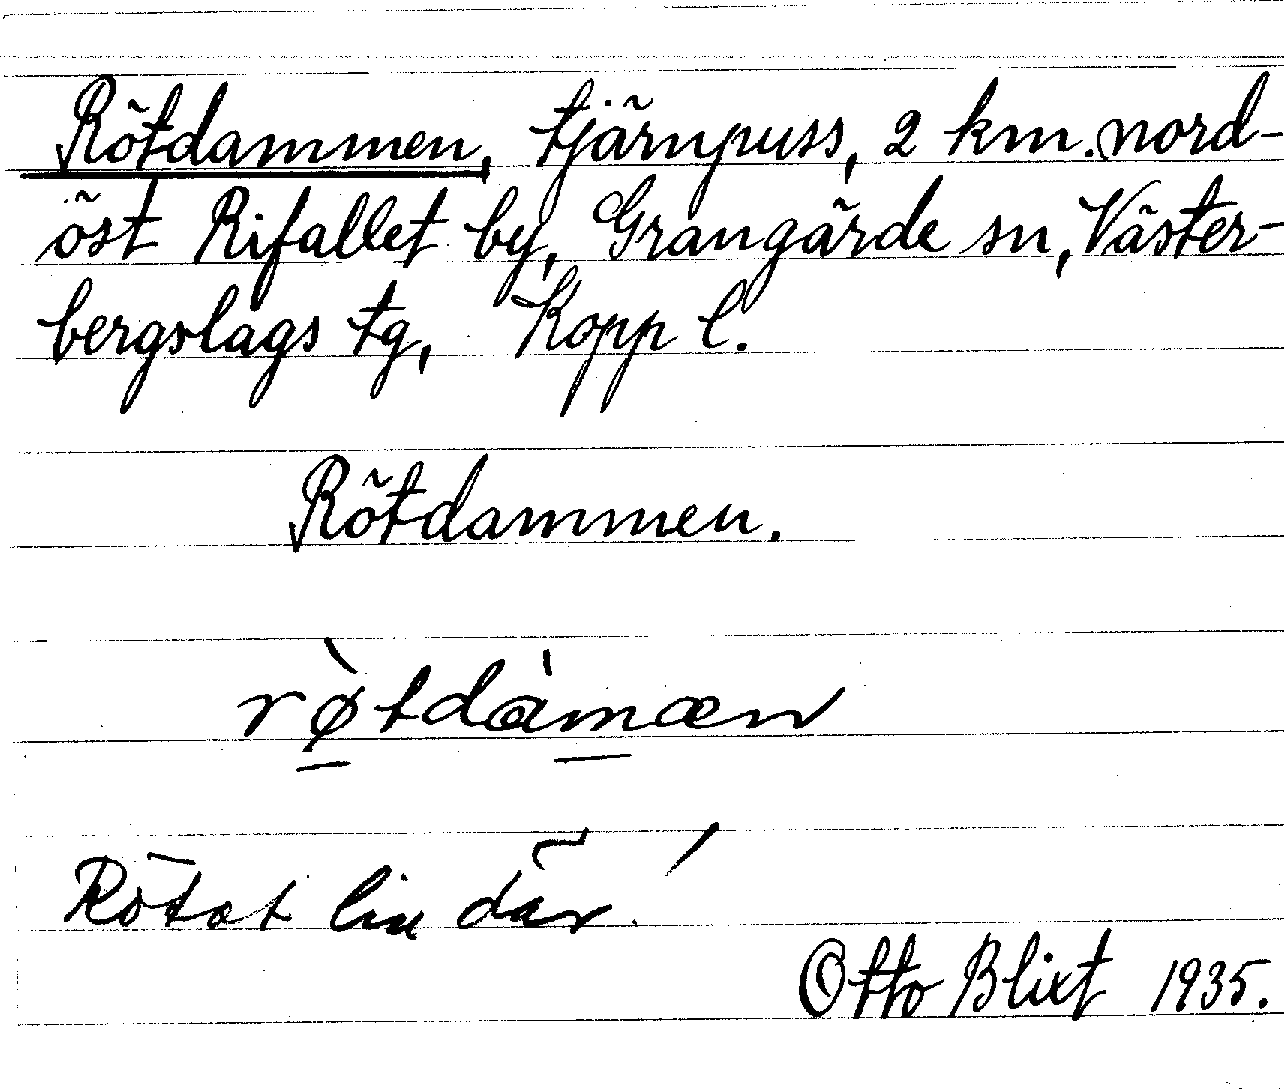 Rötdammen, tjärnpuss, 2 km. nord-
öst Rifallet by, Grangärde sn, Väster-
bergslags tg, Kopp l.
Rötdammen.
rø̀tdàmæn
Rötat lin där!
Otto Blixt 1935.